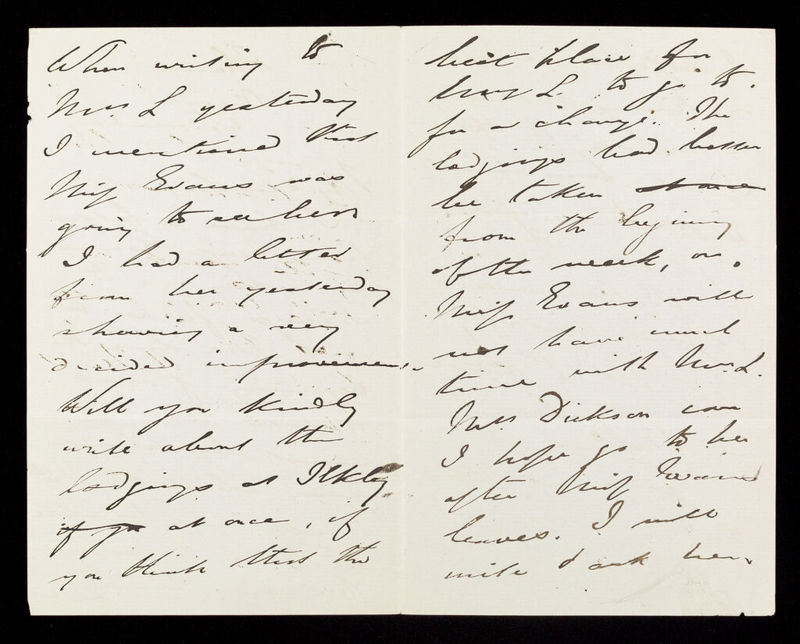 When writing to
Mrs L yesterday
I mentioned that
Miss Evans was
going to see her
I had a letter
from her yesterday
showing a very
decided improvement.
Will you kindly
write about the
lodgings at Ilkley
if you at once, if
you think that the
best place for
Mrs L. to go to.
for a change. The
lodgings had better
be taken at once
from the begining
of the week, or
Miss Evans will
not have much
time with Mrs. L.
Mrs Dickson can
I hope go to her
after Miss Evans
leaves. I will
write & ask her.